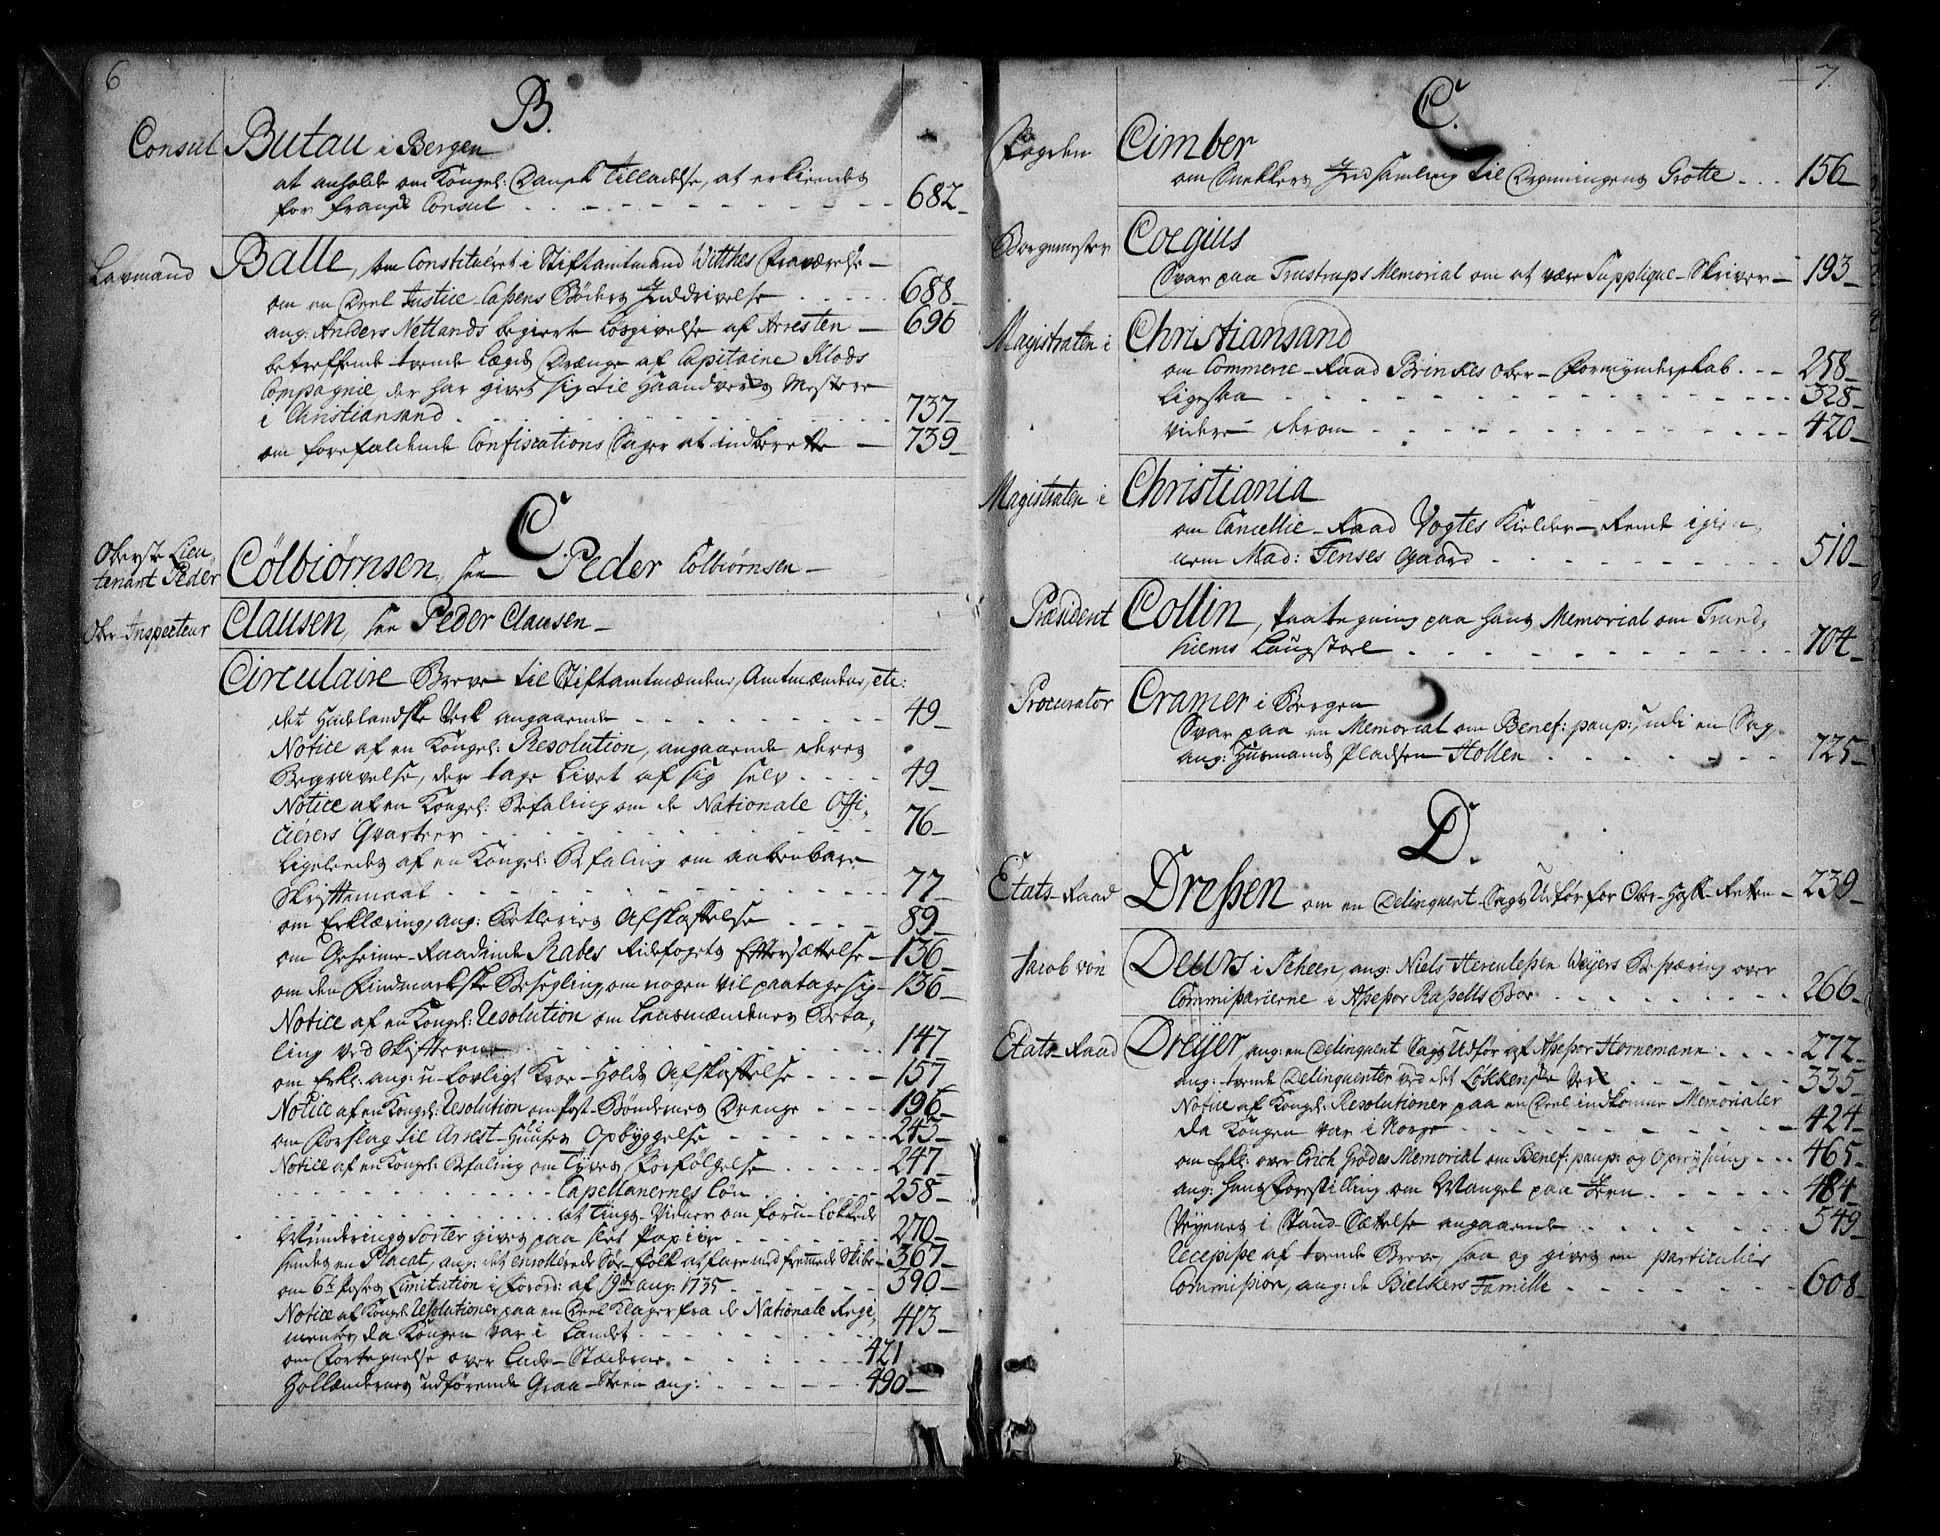 6
B.
Consul Butau i Bergen
at anholde om Kongel: Dansk Tilladelse, at erkiendes
for Fransk Consul 682
Lavmand Balle, som Constitueret i Stiftamtmand Witthes Fraværelse
om en Deel Justice Casens Bøders Inddrivelse 688
ang: Anders Netlands begierte Løsgivelse af Arresten 696
betreffende tvende Lægds Drænge af Capitaine Klods
Compagnie, der har givet sig til Haandverks Mestere
i Christiansand 737
om forefaldende Confiscations Sager at indberette 739
C.
Oberste Lieu,
tenant Peder Cölbiörnsen, see Peder Colbiørnsen
Ober-Inspecteur Clausen, see Peder Clausen
Circulaire Breve til Stiftamtmændene, Amtmændene, etc:
det Hadelandske Verk angaaende 49
Notice af en Kongel: Resolution, angaaende deres
Begravelse, der tage Livet af sig selv 49
Notice af en Kongel: Befaling om de Nationale Offi,
cierers Qvarteer 76
Ligeledes af en Kongel: Befaling om aabenbare
Skriftemaal 77
om Erklæring, ang: Betleries Afskaffelse 89
om Geheime-Raadinde Rabes Ridefogets Eftersættelse 136
om den Findmarkske Besegling, om nogen vil paatage sig 136
Notice af en Kongel: Resolution om Lensmændenes Beta,
ling ved Skifterne 147
om Erkl: ang: u-lovligt Kroe-Holds Afskaffelse 157
Notice af en Kongel: Resolution om Post-Bøndernes Drenge 196
om Forslag til Arrest-Huusers Opbyggelse 243
Notice af en Kongel: Befaling om Tyves Forfølgelse 247
Capellanernes Løn 258
at Tings-Vidner om
Wurderings gives paa slet Papiir 270
sendes en Placat, ang: det enrollerede Søe-Folk at fare med fremmede Skibe 367
om 6te Posts Limitation i Forord: af 19de aug: 1735 390
Notice af Kongel: Resolutioner paa en Deel Klager fra de Nationale Regi,
menter, da Kongen var i Landet 413
om Fortegnelse over Lade-Stæderne 421
Hollændernes udførende Graa-Steen ang: 490
7.
C.
Fogden Cimber
om Snekkers Indsamling til Dronningens Grotte 156
Borgemester Coegius
Svar paa Trustrups Memorial om at være Supplique-Skriver 193
Magistraten i Christiansand
om Commerce-Raad Brinkes Ober-Formynderskab 258
Ligesaa 328
videre derom 420
Magistraten i Christiania
om Cancellie-Raad Vogtes Kielder-Rende igien,
nem Mad: Jenses Gaard 510
Præsident Collin, Paategning paa hans Memorial om Trund,
hiems Laugstoel 704
Procurator Cramer i Bergen
Svar paa en Memorial om Benef: paup:, udi en Sag,
ang: Huusmands Pladsen Hollen 725
D.
Etats-Raad Dreßen om en Delinquent-Sags Udfør for Ober-Hof-Retten 239
Jacob von Deurs i Scheen, ang: Niels Herculeßen Weyers Besværing over
Commißarierne i Aßeßor Raßells Boe 266
Etats-Raad Dreyer, ang: en Delinquent Sags Udfør af Aßeßor Hornemann 272
ang: tvende Delinquenter ved det Løkkenske Verk 335
Notice af Kongel: Resolutioner paa en Deel indkomne Memorialer
da Kongen var i Norge 424
om Erkl: over Erich Grødes Memorial om Benef: paup: og Opreysning 465
ang: hans Forestilling om Mangel paa Jern 484
Veyenes i Stand-Sættelse angaaende 549
Recepiße af tvende Breve, saa og gives en particulier
Commißion, ang: de Bielkers Famille 608